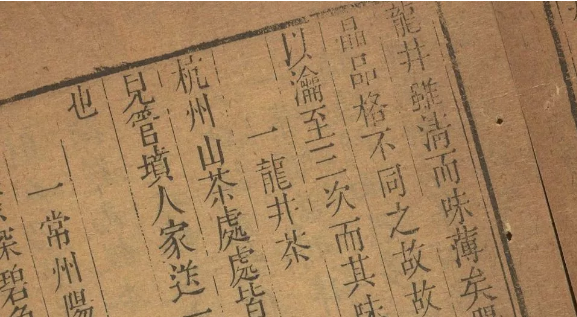 龍井雖清而味薄矣
晶品格不同之故故
以瀹至三次而其味
一龍井茶
杭州山茶處處皆
見管墳人家送一
也
一常州陽
深碧